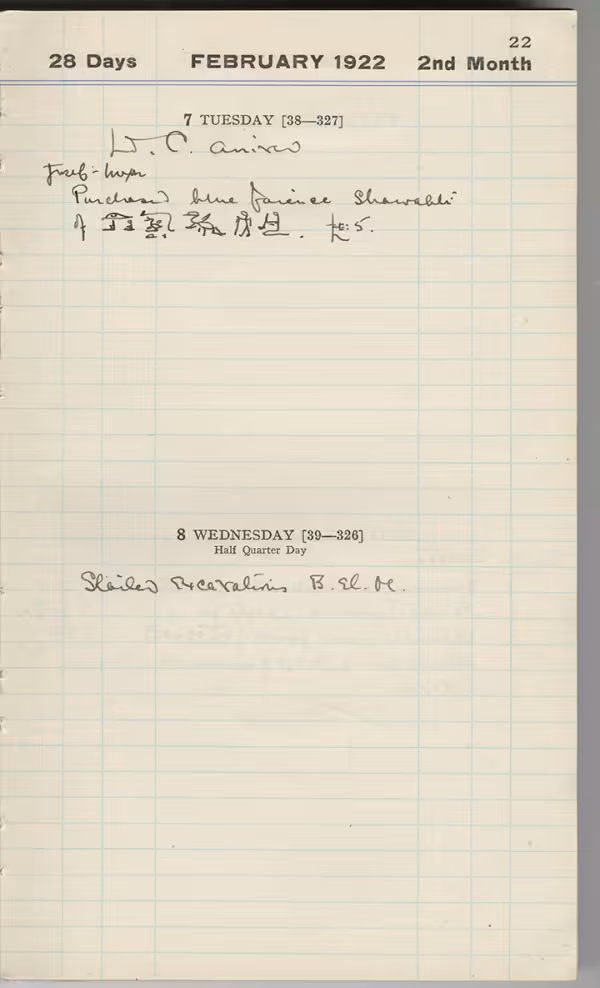 22
28 Days FEBRUARY 1922 2nd Month
7 TUESDAY [38—327]
Ld. C. arrived
Purchased blue faience Shawabti
of £E: 5.
8 WEDNESDAY [39—326]
Half Quarter Day
Started Excavations B. El. M.